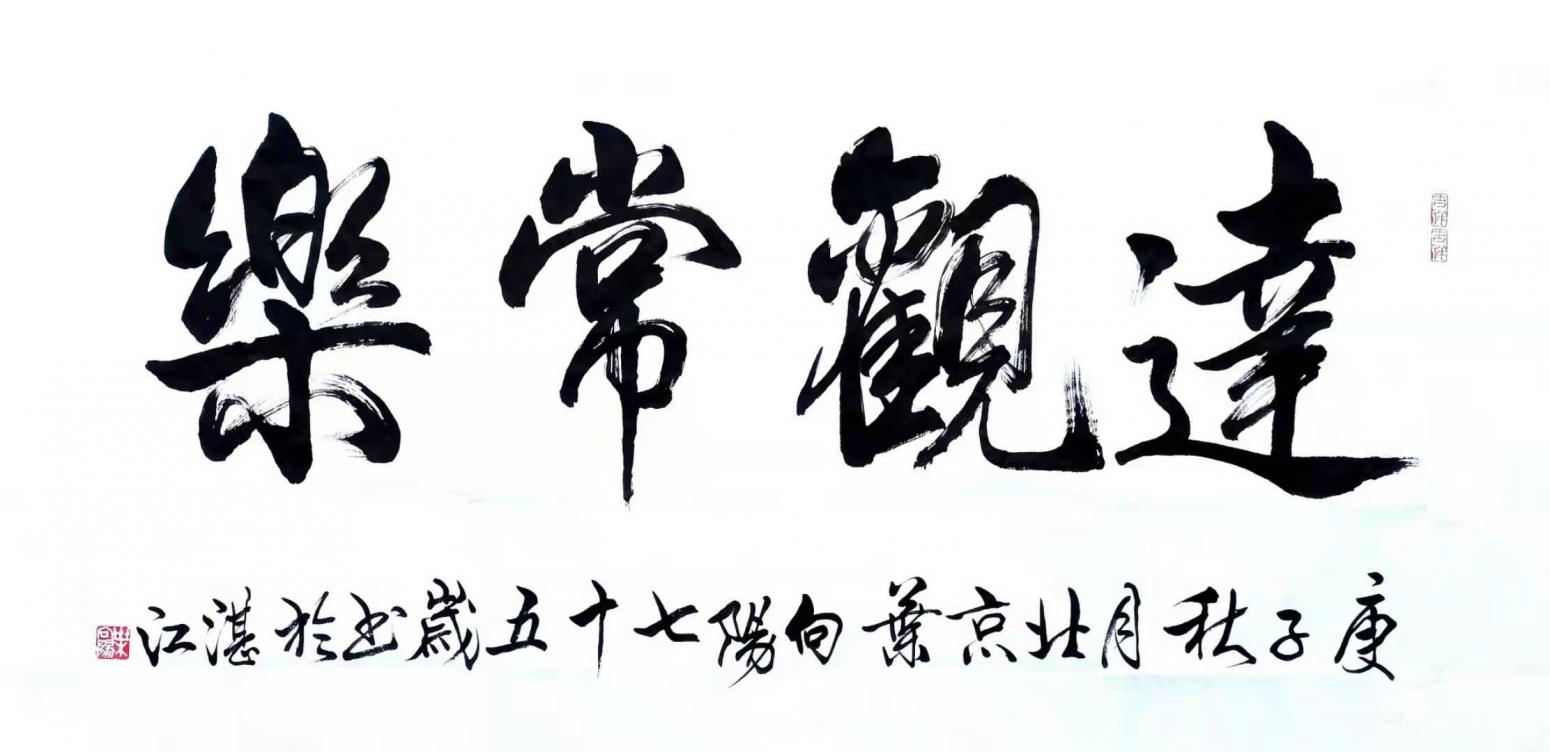 達觀常樂
庚子秋月北京葉向陽七十五歲书於湛江